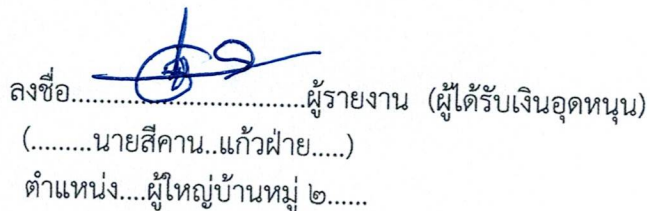 ลงชื่อ.................................ผู้รายงาน (ผู้ได้รับเงินอุดหนุน)
(.........นายสีคาน..แก้วฝ่าย.....)
ตำแหน่ง....ผู้ใหญ่บ้านหมู่ ๒......